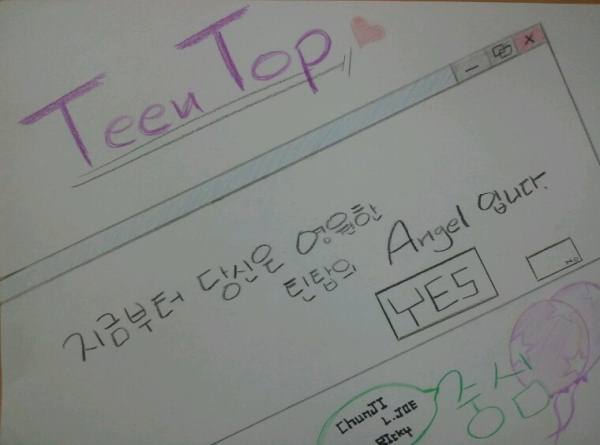 Teen Top
지금부터 당신은 영원한
틴탑의 Angel 입니다.
YES
NO
ChunJI
L.JOE
RIcky